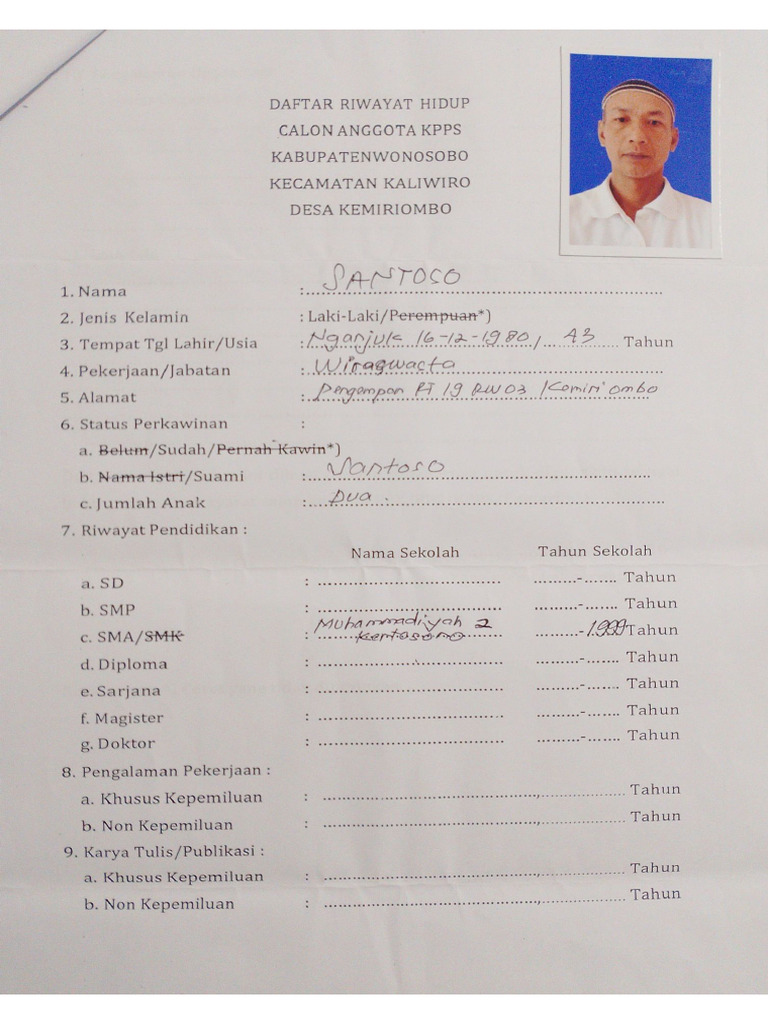 DAFTAR RIWAYAT HIDUP
CALON ANGGOTA KPPS
KABUPATENWONOSOBO
KECAMATAN KALIWIRO
DESA KEMIRIOMBO
1. Nama : SANTOSO
2. Jenis Kelamin : Laki-Laki/Perempuan*)
3. Tempat Tgl Lahir/Usia : Nganjuk 16-12-1980 / 43 Tahun
4. Pekerjaan/Jabatan : Wiraswasta
5. Alamat : Pengempon RT 19 RW 03 Kemiri ombo
6. Status Perkawinan :
a. Belum/Sudah/Pernah Kawin*)
b. Nama Istri/Suami : Santoso
c. Jumlah Anak : Dua
7. Riwayat Pendidikan :
Nama Sekolah Tahun Sekolah
a. SD : ................................. .........-....... Tahun
b. SMP : ................................. .........-....... Tahun
c. SMA/SMK : Muhammadiyah 2 Kertosono .........-1999 Tahun
d. Diploma : ................................. .........-....... Tahun
e. Sarjana : ................................. .........-....... Tahun
f. Magister : ................................. .........-....... Tahun
g. Doktor : ................................. .........-....... Tahun
8. Pengalaman Pekerjaan :
a. Khusus Kepemiluan : ......................................,.................... Tahun
b. Non Kepemiluan : ......................................,.................... Tahun
9. Karya Tulis/Publikasi :
a. Khusus Kepemiluan : ......................................,.................... Tahun
b. Non Kepemiluan : ......................................,.................... Tahun